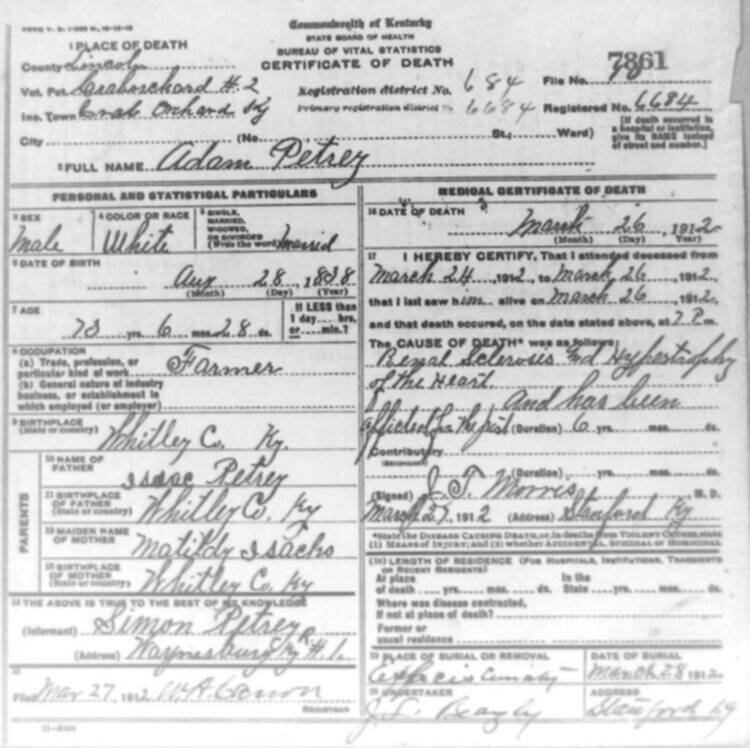 Commonwealth of Kentucky
STATE BOARD OF HEALTH
BUREAU OF VITAL STATISTICS
CERTIFICATE OF DEATH
1 PLACE OF DEATH
County Lincoln
Vot. Pct. Craborchard #2
Inc. Town Crab Orchard Ky
City (No. St.; Ward)
Registration district No. 684
Primary registration district No. 6684
File No. 7861
Registered No. 6684
[If death occurred in a hospital or institution, give its NAME instead of street and number.]
2 FULL NAME Adam Petrey
PERSONAL AND STATISTICAL PARTICULARS
3 SEX
Male
4 COLOR OR RACE
White
5 SINGLE, MARRIED, WIDOWED, OR DIVORCED (Write the word) married
6 DATE OF BIRTH
Aug 28, 1838
(Month) (Day) (Year)
7 AGE
73 yrs. 6 mos. 28 ds.
If LESS than 1 day.... hrs. or.... min.?
8 OCCUPATION
(a) Trade, profession, or particular kind of work Farmer
(b) General nature of industry business, or establishment in which employed (or employer)
9 BIRTHPLACE
(State or country) Whitley Co. Ky.
PARENTS
10 NAME OF FATHER Isaac Petrey
11 BIRTHPLACE OF FATHER (State or country) Whitley Co. Ky
12 MAIDEN NAME OF MOTHER Matildy Isachs
13 BIRTHPLACE OF MOTHER (State or country) Whitley Co. Ky
14 THE ABOVE IS TRUE TO THE BEST OF MY KNOWLEDGE
(Informant) Simon Petrey
(Address) Waynesburg Ky R #1.
15
Filed Mar 27, 1912
REGISTRAR
MEDICAL CERTIFICATE OF DEATH
16 DATE OF DEATH
March 26, 1912
(Month) (Day) (Year)
17 I HEREBY CERTIFY, That I attended deceased from
March 24, 1912, to March 26, 1912,
that I last saw him alive on March 26, 1912,
and that death occured, on the date stated above, at 7 P m.
The CAUSE OF DEATH* was as follows:
Renal Sclerosis and Hypertrophy
of the Heart.
And has been
afflicted for the past (Duration) 6 yrs. mos. ds.
Contributory
(SECONDARY)
(Duration) yrs. mos. ds.
(Signed) J. T. Morris, M. D.
March 27, 1912 (Address) Stanford Ky
*State the DISEASE CAUSING DEATH, or, in deaths from VIOLENT CAUSES, state
(1) MEANS OF INJURY; and (2) whether ACCIDENTAL, SUICIDAL OR HOMICIDAL
(18) LENGTH OF RESIDENCE (FOR HOSPITALS, INSTITUTIONS, TRANSIENTS OR RECENT RESIDENTS)
At place of death yrs. mos. ds. In the State yrs. mos. ds.
Where was disease contracted,
if not at place of death?
Former or usual residence
19 PLACE OF BURIAL OR REMOVAL
DATE OF BURIAL
March 28 1912
20 UNDERTAKER
J. L. Beazley
ADDRESS
Stanford Ky